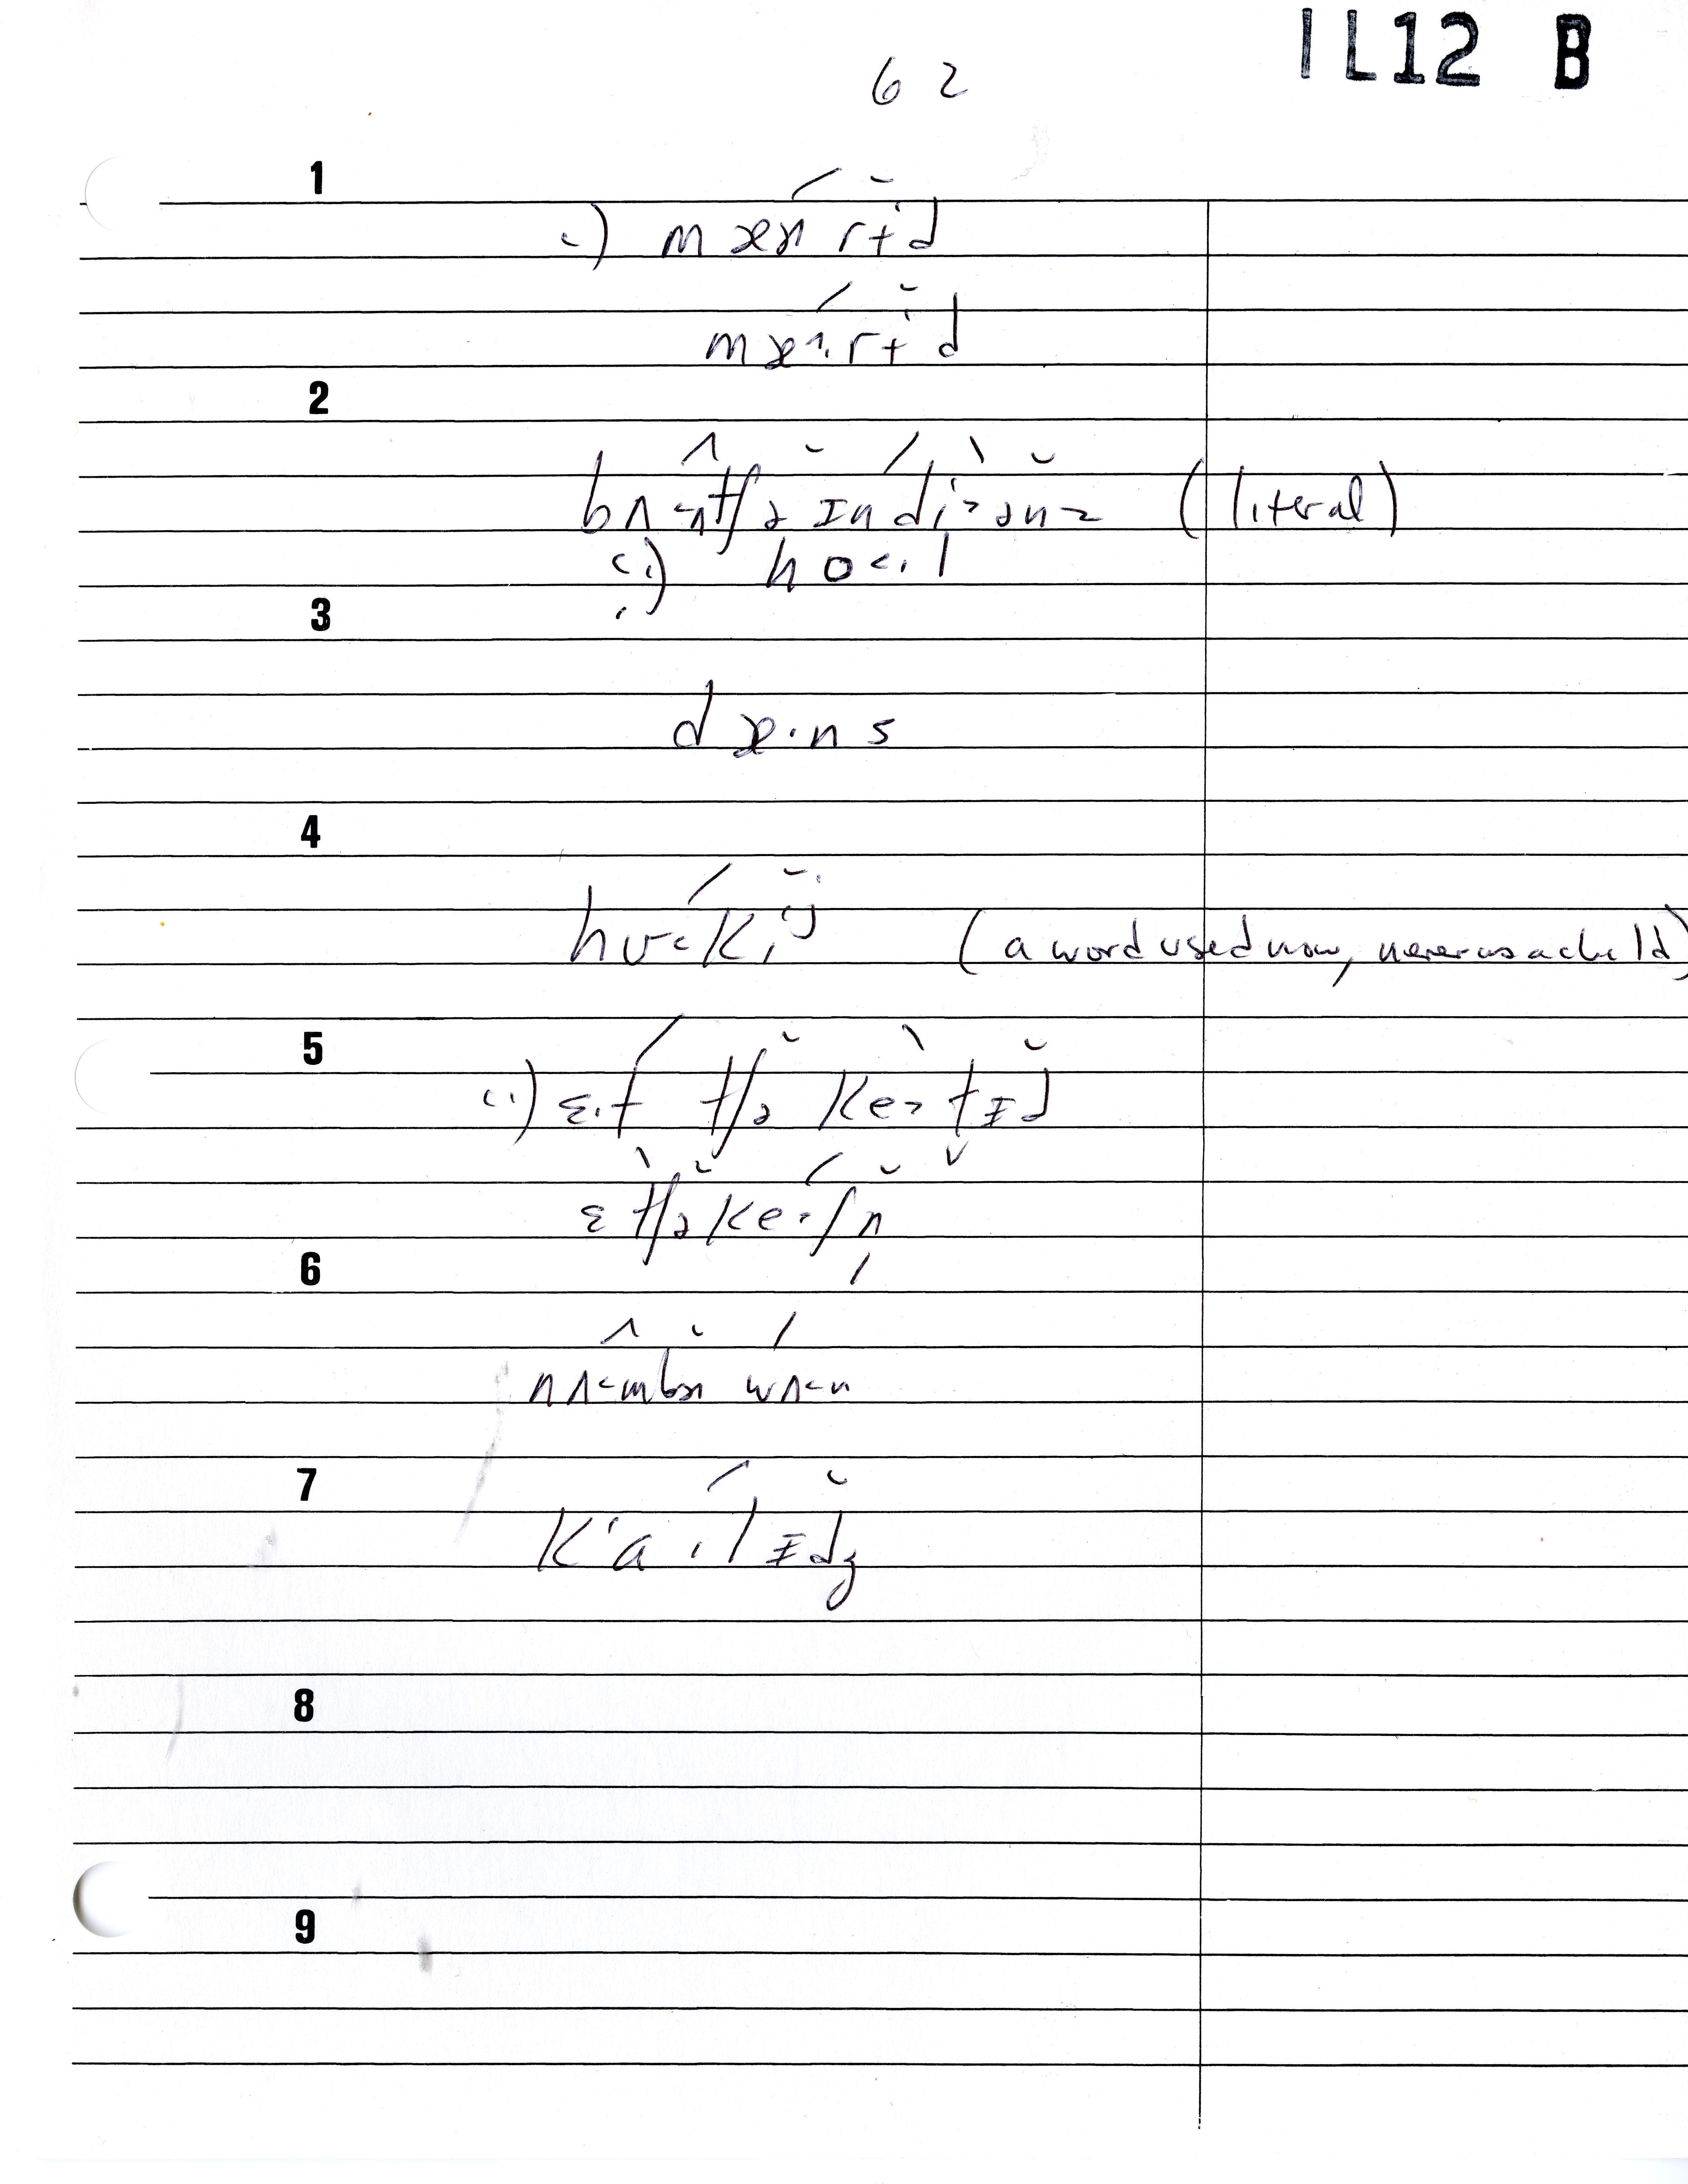 IL12 B
62
1
c.) mæn rɨd
mæn. rɨd
2
bʌ˂ntʃə ɪndi˃ənz (literal)
c.) ho˂.l
3
dæ.ns
4
hʊ˂kɪj (a word used now, never as a child)
5
c.) ɛ.t tʃə ke˃tɪd
ɛtʃəke.ʃn̩
6
nʌ˂mbɚ wʌ˂n
7
k'a.lɪdʒ
8
9